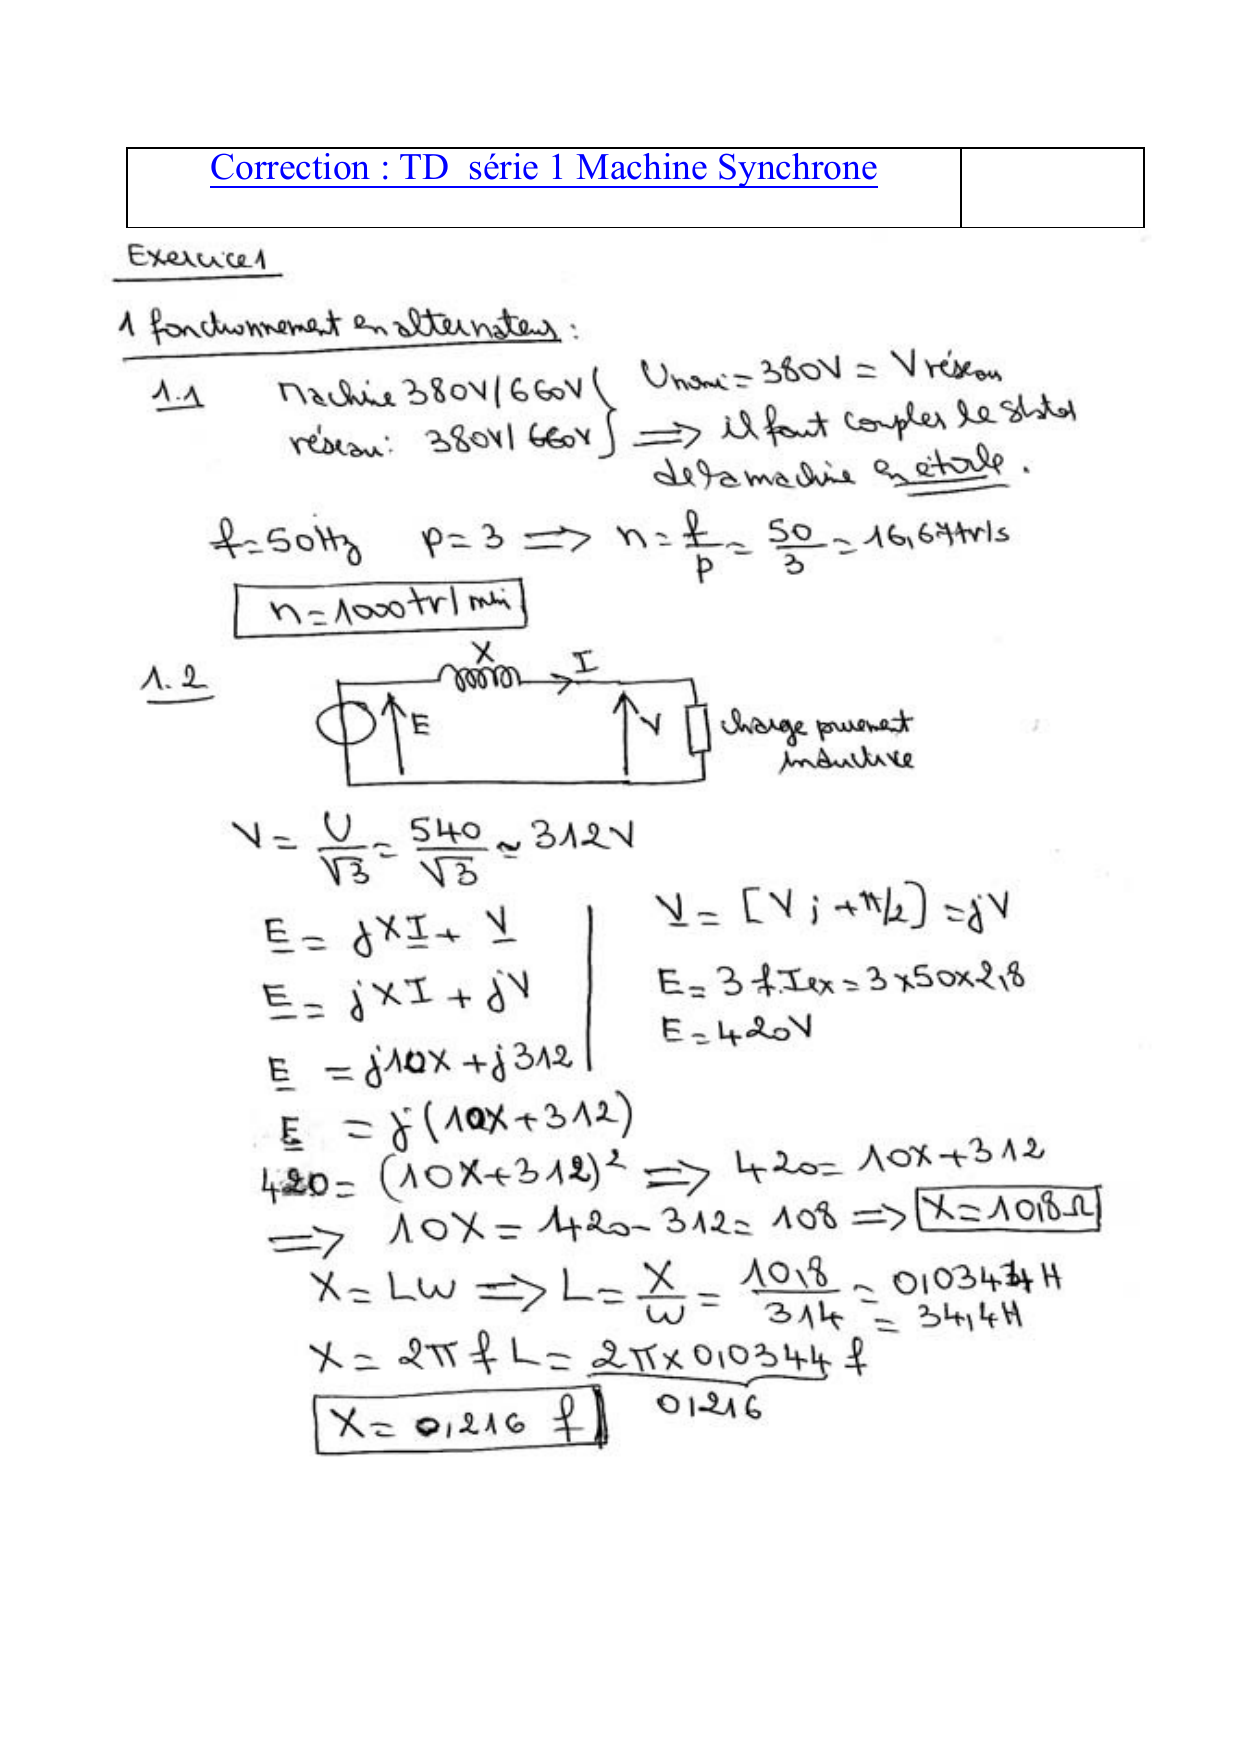 Correction : TD série 1 Machine Synchrone
Exercice1
1 fonctionnement en alternateur :
1.1 Machine 380V/660V } Unomi = 380V = V réseau
réseau: 380V/660V } ⟹ il faut coupler le stator
de la machine en étoile.
f=50Hz p=3 ⟹ n = f/p = 50/3 = 16,67tr/s
n=1000tr/min
1.2
X I
E V charge purement
inductive
V = U/√3 = 540/√3 ≃ 312V
E = jXI + V
V = [V ; +π/2] = jV
E = jXI + jV
E = 3 f.Iex = 3x50x2,8
E = 420V
E = j10X + j312
E = j(10X+312)
420 = (10X+312)² ⟹ 420 = 10X+312
⟹ 10X = 420-312 = 108 ⟹ X=10,8Ω
X = Lω ⟹ L = X/ω = 10,8/314 = 0,0344 H
= 34,4H
X = 2π f L = 2π x 0,0344 f
0,216
X = 0,216 f